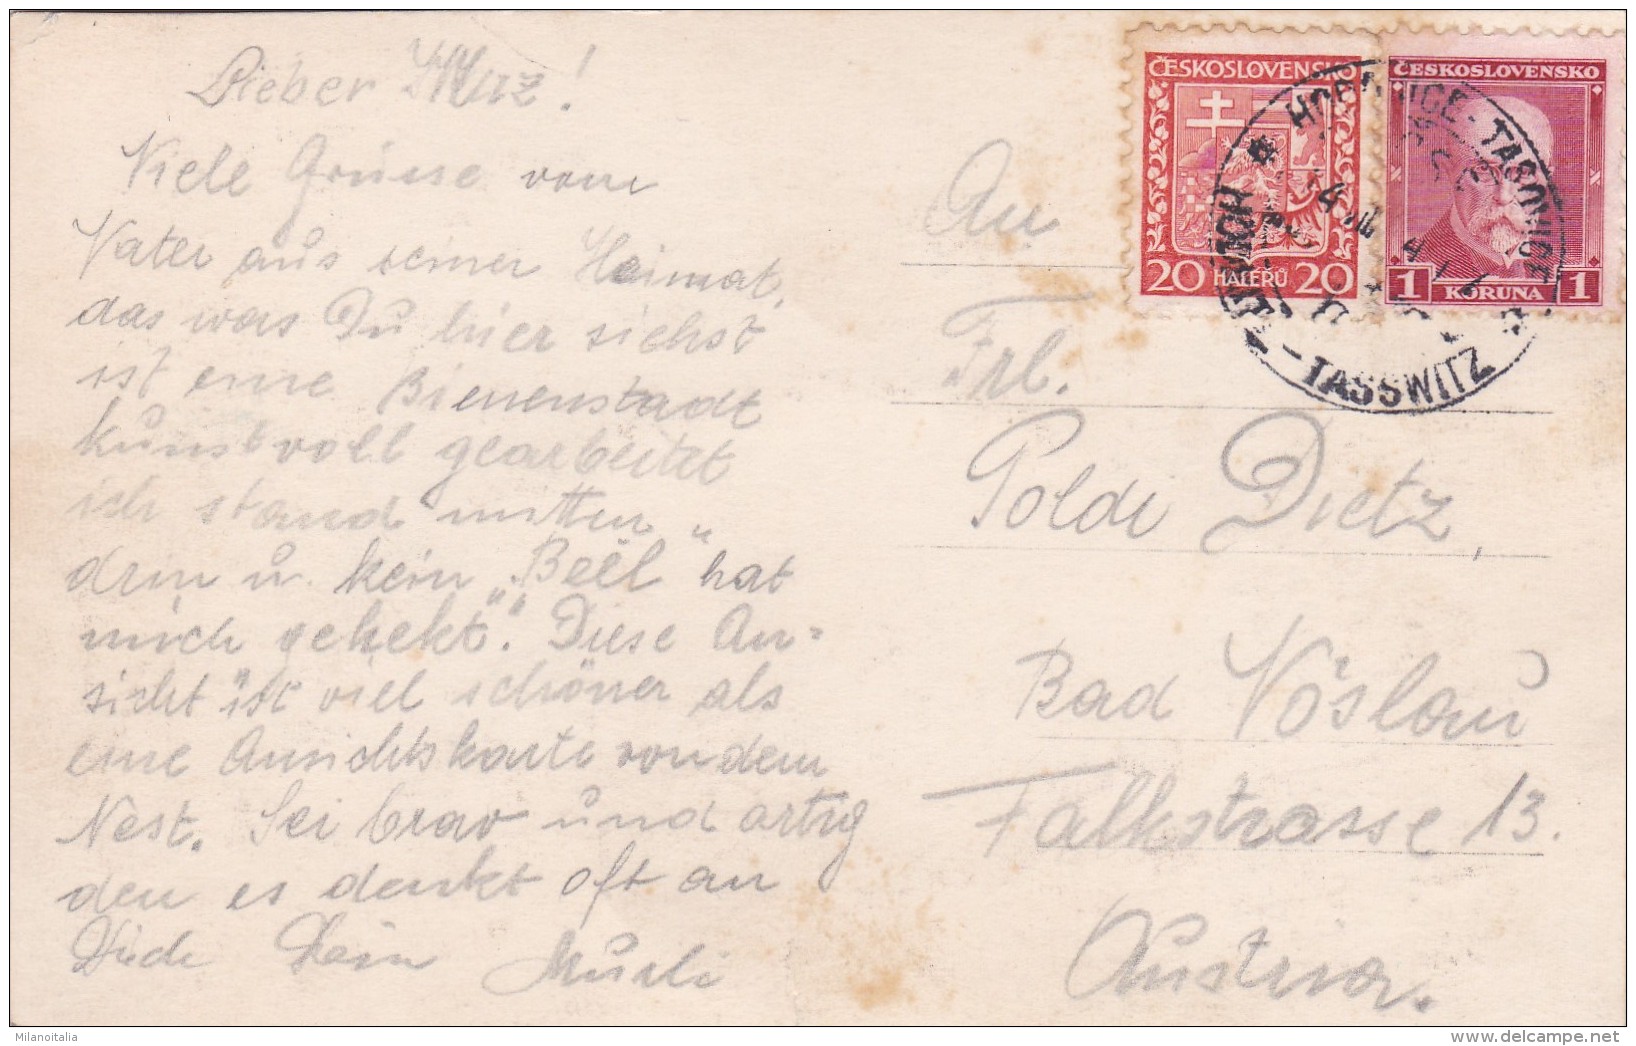 Lieber !
Viele Grüsse vom
Vater aus seiner Heimat,
das was Du hier siehst
ist eine Bienenstadt
kunstvoll gearbeitet
ich stand mitten
drin u. kein „Beel“ hat
mich „gekekt“. Diese An=
sicht ist viel schöner als
eine Ansichtskarte von dem
Nest. Sei brav und artig
den es denkt oft an
Dich Dein
An
Frl.
Poldi Dietz,
Bad Vöslau
Falkstrasse 13.
Austria.
ČESKOSLOVENSKO
20 HALÉŘŮ 20
ČESKOSLOVENSKO
1 KORUNA 1
TASOVICE
-TASSWITZ
Milanoitalia
www.delcampe.net